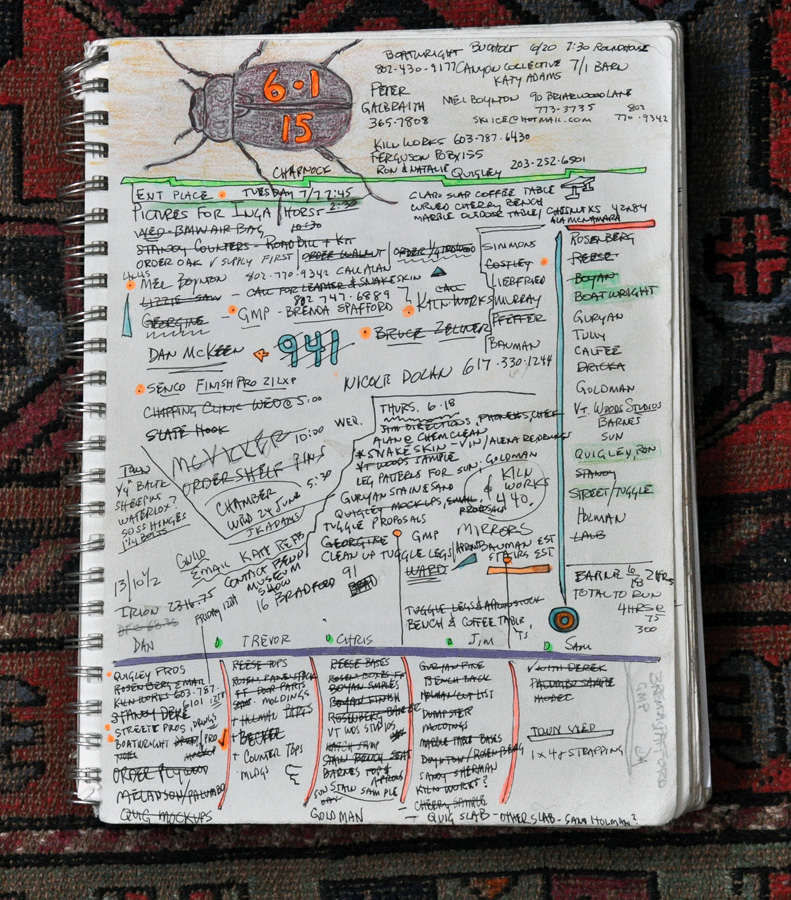 6·1
15
BOATWRIGHT BUCHOLT 6/20 7:30 ROUNDHOUSE
802-430-9177 CANYON COLLECTIVE 7/1 BARN
KATY ADAMS
PETER
GALBRAITH
365-7808
MEL BOYNTON 90 BRIARWOOD LANE
773-3735
SKIICE@HOTMAIL.COM
802
770-9342
KILN WORKS 603-787-6430
FERGUSON POBX155
RON & NATALIE QUIGLEY 203-252-6501
CHARNOCK
ENT PLACE TUESDAY 7/7 7:45
PICTURES FOR INGA/HORST 2:30
WED BMW AIR BAG 10:30
STANDY COUNTERS - ROAD BILL + KIT
ORDER OAK V SUPPLY FIRST
CLARO SLAB COFFEE TABLE
CURVED CHERRY BENCH
MARBLE OUTDOOR TABLE/
42x84
ALA MCNAMARA
MEL BOYNTON 802-770-9342 CALL ALAN
LIZZIE SAW - CALL FOR LEATHER & SNAKESKIN
802 747-6889
GEORGINE - GMP - BRENDA SPAFFORD
KILN WORKS
DAN MCKEEN
941
BRUCE ZELLNER
NICOLE DOLAN 617-330-1244
SIMMONS
COSTLEY
LIEBFRIED
MURRAY
PFEFFER
BAUMAN
ROSENBERG
REESE
BOYAN
BOATWRIGHT
GURYAN
TULLY
CALTER
DRICKA
GOLDMAN
VT. WOODS STUDIOS
BARNES
SUN
QUIGLEY, RON
STANDY
STREET/TUGGLE
HOLMAN
LAUB
SENCO FINISH PRO 21LXP
CHIPPING CLINIC WED @ 5:00
SLATE HOOK
MCVICKER 10:00
ORDER SHELF PINS
CHAMBER 5:30
WED 24 JUNE
JK ADAMS
WATERLOX?
SOSS HINGES
1 1/4 BOLTS
WED.
THURS. 6·18
SIM DIRECTIONS, PHONEKS, CHECK
ALAN @ CHEMCLEAN
* SNAKESKIN - VIN/ALENA READINGS
VT WOODS SAMPLE
LEG PATTERNS FOR SUN, GOLDMAN
GURYAN STAIN & SAND
QUIGLEY MOCKUPS, EMAIL, PROPOSALS
TUGGLE PROPOSALS
GEORGINE GMP
CLEAN UP TUGGLE LEGS/APRONS
WARD
KILN
WORKS
$ 440.
MIRRORS
BAUMAN EST
STAIRS EST
GUILD
EMAIL KATE
CONTACT BEND
MUSEUM
SHOW
16 BRADFORD
91
13/10 1/2
IRION 2316.75
FRIDAY 12TH
TUGGLE LEGS & APRON STOCK
BENCH & COFFEE TABLE,
BARNE 6/18 2 HRS
TOTAL TO RUN
4 HRS @
75
300
DAN
TREVOR
CHRIS
JIM
SAM
QUIGLEY PROS
ROSENBERG EMAIL
KILN WORKS 603.787.
6101 1ST
STANDY DESK
STREETE PROS, DRWGS
BOATWRIGHT PRO
ORDER PLYWOOD
MELADSON/PALUMBO
QUIG MOCKUPS
REESE TOPS
ROSEN RADIN STACK
FF DOOR PARTS
MOLDINGS
+ HILLMAN PARTS
+ BECKEL
+ COUNTER TOPS
MLDGS
REESE BASES
BOYAN SHELVES
BOYAN FINISH
ROSENBERG BAKER
VT WDS STUDIOS
MATCH SAMP
STAIN BENCH SEAT
BARNES TOP & APRONS
SUN STAIN SAMPLE
GOLDMAN
GURYAN FINE
BENCH BACK
HOLMAN CUT LIST
DUMPSTER
MOLDINGS
MARBLE TABLE BASES
BOYNTON/ROSENBERG
SANDY SHERMAN
KILN WORKS?
CHERRY SAMPLE
- QUIG SLAB - OTHER SLAB - SAM HOLMAN?
WITH DEREK
PALUMBO SAMPLE
MODEL
TOWN WED
1 x 48 STRAPPING
BRENDA SPAFFORD
GMP